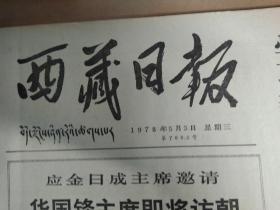 西藏日報
1978年5月3日 星期三
应金日成主席邀请
华国锋主席即将访朝